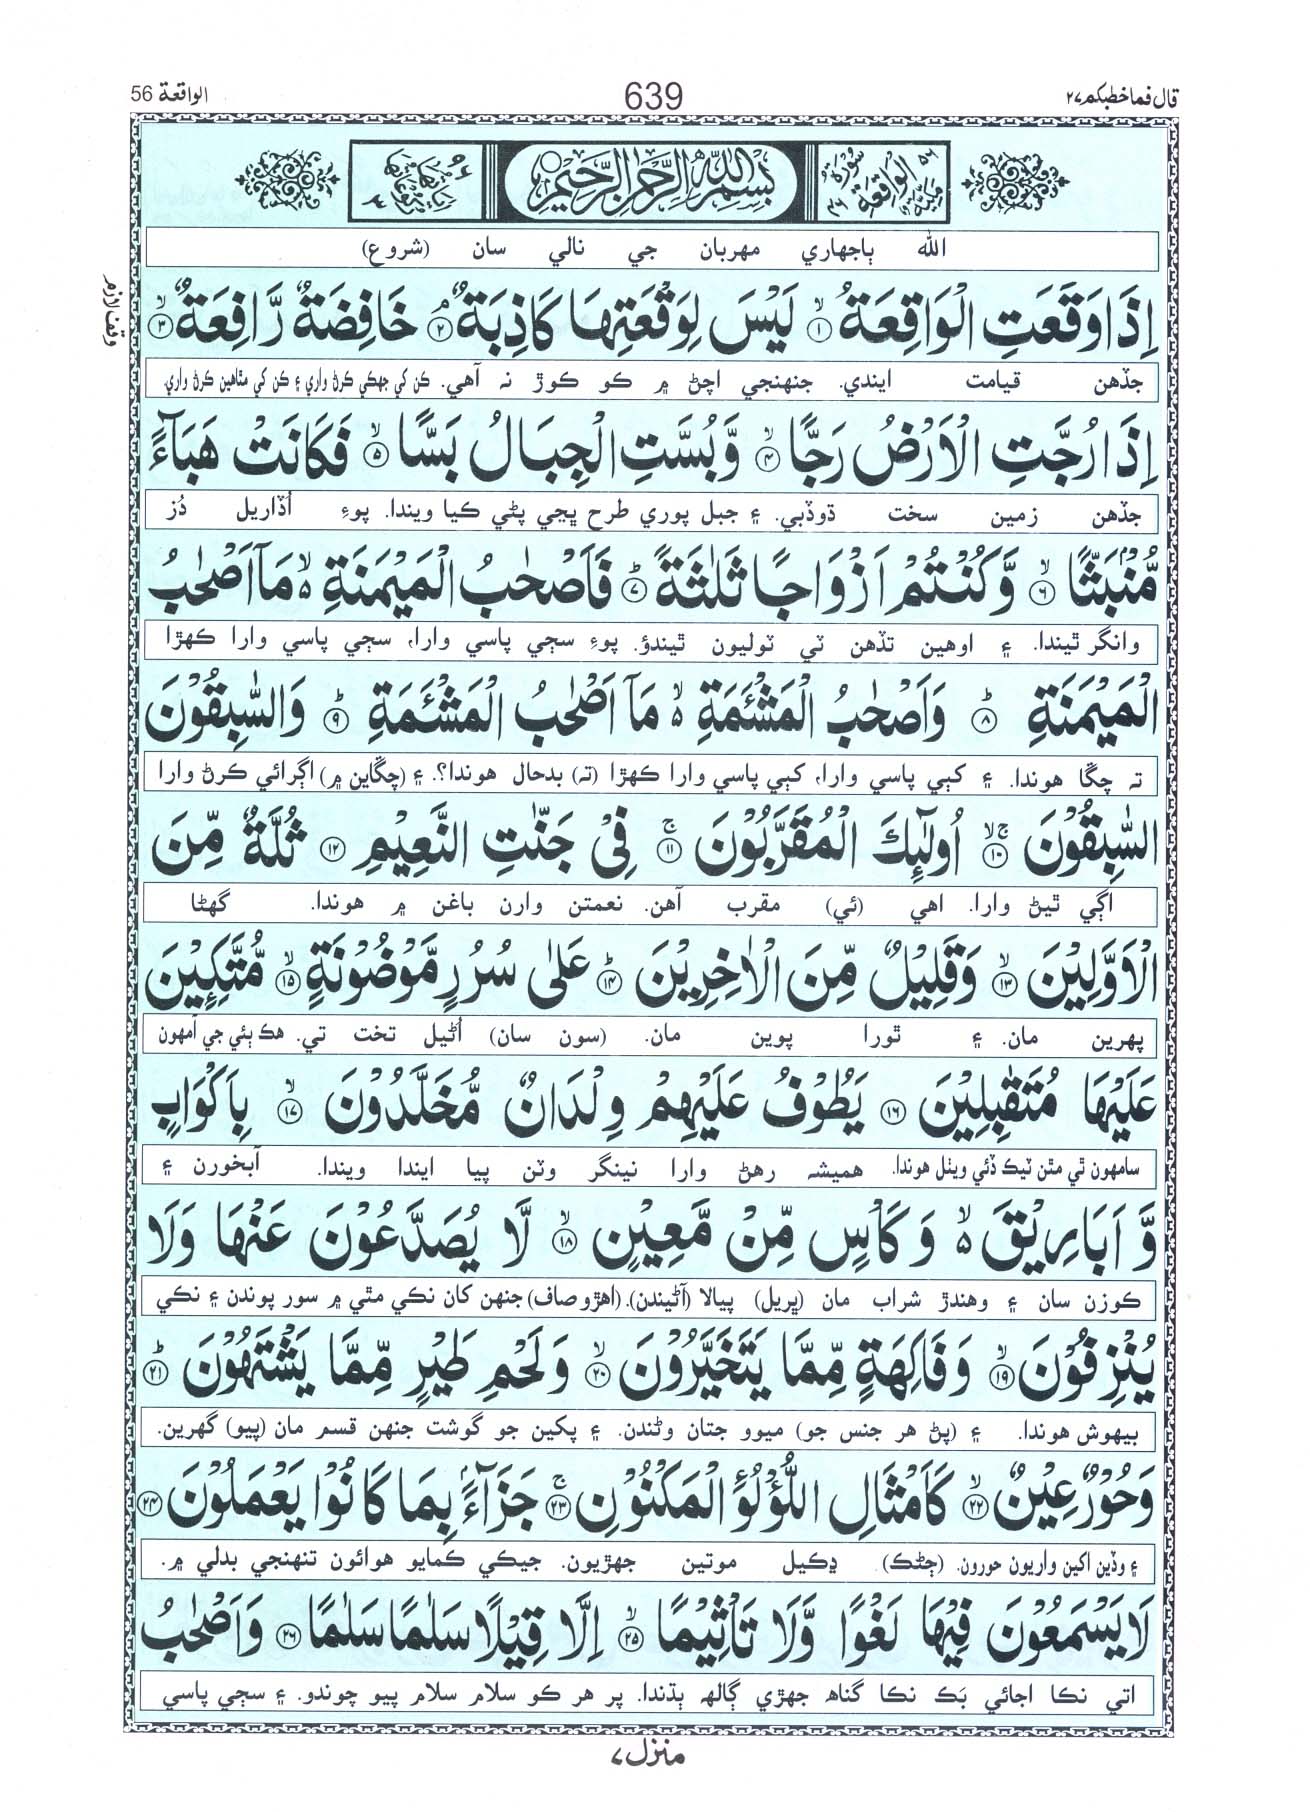 قال فما خطبكم ٢٧
639
الواقعة 56
سورة الواقعة مكية ٥٦ ٤٦
بسم الله الرحمن الرحيم
الله ٻاجهاري مهربان جي نالي سان (شروع)
اِذَا وَقَعَتِ الْوَاقِعَةُ ۙ﴿١﴾ لَيْسَ لِوَقْعَتِهَا كَاذِبَةٌ ۘ﴿٢﴾ خَافِضَةٌ رَّافِعَةٌ ۙ﴿٣﴾
وقف لازم
جڏهن قيامت ايندي. جنهنجي اچڻ ۾ ڪو ڪوڙ نہ آهي. ڪن کي جهڪي ڪرڻ واري ۽ ڪن کي مٿاهين ڪرڻ واري.
اِذَا رُجَّتِ الْاَرْضُ رَجًّا ۙ﴿٤﴾ وَّبُسَّتِ الْجِبَالُ بَسًّا ۙ﴿٥﴾ فَكَانَتْ هَبَآءً
جڏهن زمين سخت ڌوڏبي. ۽ جبل پوري طرح ڀڃي پڻي ڪيا ويندا. پوءِ اُڏاريل دُز
مُّنْۢبَثًّا ۙ﴿٦﴾ وَّكُنْتُمْ اَزْوَاجًا ثَلٰثَةً ؕ﴿٧﴾ فَاَصْحٰبُ الْمَيْمَنَةِ ۙ۬ مَاۤ اَصْحٰبُ
وانگر ٿيندا. ۽ اوهين تڏهن ٽي ٽوليون ٿيندؤ. پوءِ سڄي پاسي وارا، سڄي پاسي وارا ڪهڙا
الْمَيْمَنَةِ ؕ﴿٨﴾ وَاَصْحٰبُ الْمَشْـَٔمَةِ ۙ۬ مَاۤ اَصْحٰبُ الْمَشْـَٔمَةِ ؕ﴿٩﴾ وَالسّٰبِقُوْنَ
تہ چڱا هوندا. ۽ کٻي پاسي وارا، کٻي پاسي وارا ڪهڙا (تہ) بدحال هوندا؟. ۽ (چڱاين ۾) اڳرائي ڪرڻ وارا
السّٰبِقُوْنَ ۚۙ﴿١٠﴾ اُولٰٓئِكَ الْمُقَرَّبُوْنَ ۚ﴿١١﴾ فِيْ جَنّٰتِ النَّعِيْمِ ﴿١٢﴾ ثُلَّةٌ مِّنَ
اڳي ٿيڻ وارا. اهي (ئي) مقرب آهن. نعمتن وارن باغن ۾ هوندا. گهڻا
الْاَوَّلِيْنَ ۙ﴿١٣﴾ وَقَلِيْلٌ مِّنَ الْاٰخِرِيْنَ ؕ﴿١٤﴾ عَلٰى سُرُرٍ مَّوْضُوْنَةٍ ۙ﴿١٥﴾ مُّتَّكِـِٕيْنَ
پهرين مان. ۽ ٿورا پوين مان. (سون سان) اُڻيل تخت تي. هڪ ٻئي جي آمهون
عَلَيْهَا مُتَقٰبِلِيْنَ ﴿١٦﴾ يَطُوْفُ عَلَيْهِمْ وِلْدَانٌ مُّخَلَّدُوْنَ ۙ﴿١٧﴾ بِاَكْوَابٍ
سامهون ٿي مٿن ٽيڪ ڏئي ويٺل هوندا. هميشہ رهڻ وارا نينگر وٽن پيا ايندا ويندا. آبخورن ۽
وَّاَبَارِيْقَ ۙ۬ وَكَاْسٍ مِّنْ مَّعِيْنٍ ۙ﴿١٨﴾ لَّا يُصَدَّعُوْنَ عَنْهَا وَلَا
ڪوزن سان ۽ وهندڙ شراب مان (ڀريل) پيالا (آڻيندن). (اهڙو صاف) جنهن کان نڪي مٿي ۾ سور پوندن ۽ نڪي
يُنْزِفُوْنَ ۙ﴿١٩﴾ وَفَاكِهَةٍ مِّمَّا يَتَخَيَّرُوْنَ ۙ﴿٢٠﴾ وَلَحْمِ طَيْرٍ مِّمَّا يَشْتَهُوْنَ ؕ﴿٢١﴾
بيهوش هوندا. ۽ (پڻ هر جنس جو) ميوو جتان وڻندن. ۽ پکين جو گوشت جنهن قسم مان (پيو) گهرين.
وَحُوْرٌ عِيْنٌ ۙ﴿٢٢﴾ كَاَمْثَالِ اللُّؤْلُؤِ الْمَكْنُوْنِ ۚ﴿٢٣﴾ جَزَآءًۢ بِمَا كَانُوْا يَعْمَلُوْنَ ﴿٢٤﴾
۽ وڏين اکين واريون حورون. (ڄڻڪ) ڍڪيل موتين جهڙيون. جيڪي ڪمايو هوائون تنهنجي بدلي ۾.
لَا يَسْمَعُوْنَ فِيْهَا لَغْوًا وَّلَا تَاْثِيْمًا ۙ﴿٢٥﴾ اِلَّا قِيْلًا سَلٰمًا سَلٰمًا ﴿٢٦﴾ وَاَصْحٰبُ
اتي نڪا اجائي بَڪ نڪا گناه جهڙي ڳالهہ ٻڌندا. پر هر ڪو سلام سلام پيو چوندو. ۽ سڄي پاسي
منزل ٧